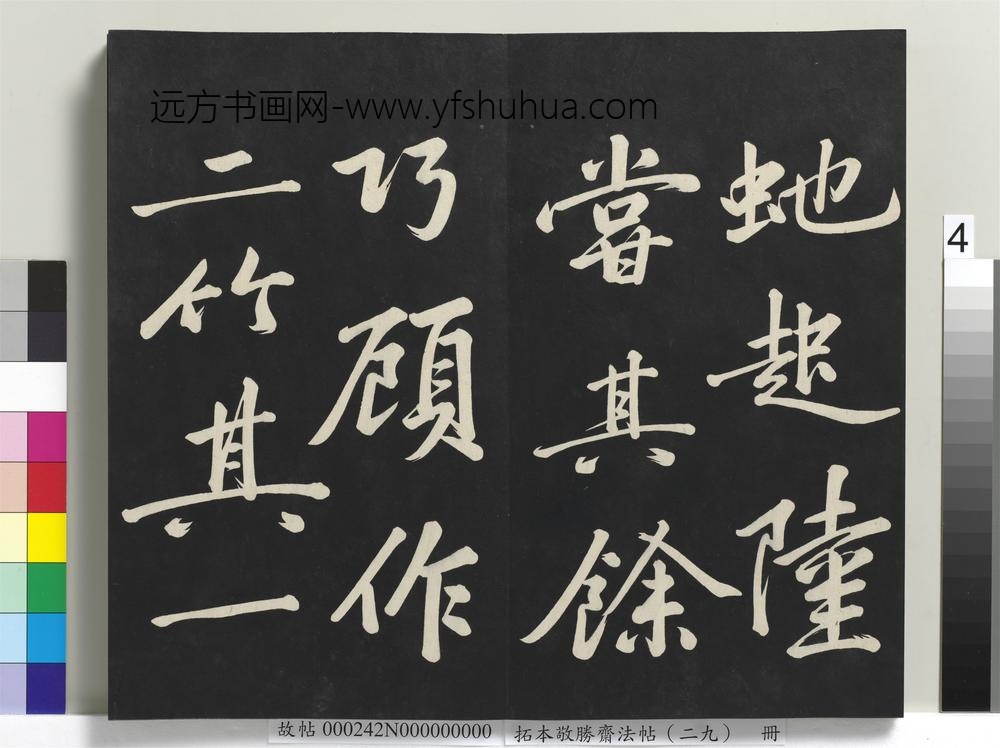 远方书画网-www.yfshuhua.com
虵起陸
嘗其餘
巧顧作
二竹其一
4
故帖 000242N000000000 拓本敬勝齋法帖（二九） 冊